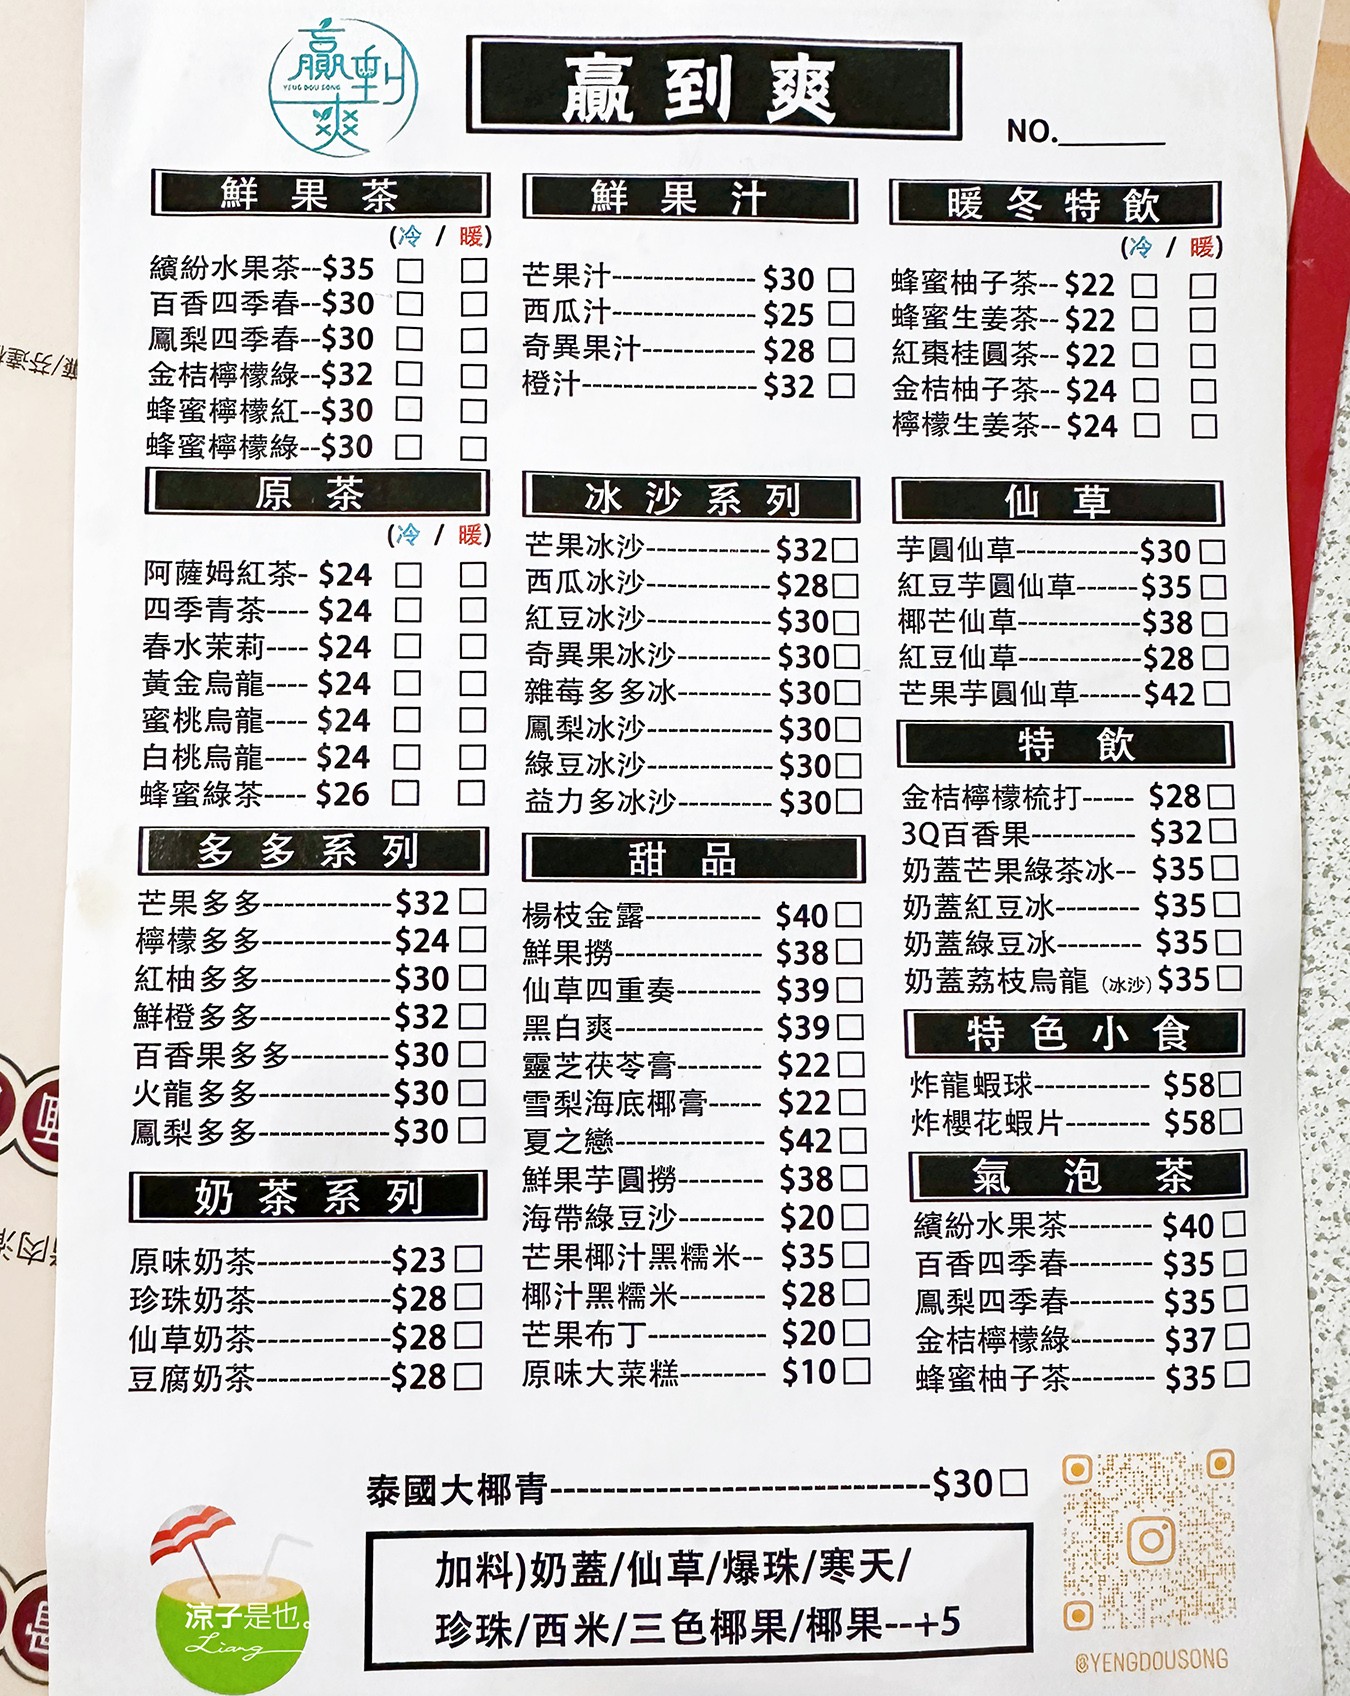 贏到
YENG DOU SONG
爽
贏到爽
NO.
鮮果茶
(冷 / 暖)
繽紛水果茶--$35
百香四季春--$30
鳳梨四季春--$30
金桔檸檬綠--$32
蜂蜜檸檬紅--$30
蜂蜜檸檬綠--$30
原茶
(冷 / 暖)
阿薩姆紅茶- $24
四季青茶---- $24
春水茉莉---- $24
黃金烏龍---- $24
蜜桃烏龍---- $24
白桃烏龍---- $24
蜂蜜綠茶---- $26
多多系列
芒果多多------------$32
檸檬多多------------$24
紅柚多多------------$30
鮮橙多多------------$32
百香果多多---------$30
火龍多多------------$30
鳳梨多多------------$30
奶茶系列
原味奶茶------------$23
珍珠奶茶------------$28
仙草奶茶------------$28
豆腐奶茶------------$28
鮮果汁
芒果汁-------------- $30
西瓜汁-------------- $25
奇異果汁----------- $28
橙汁----------------- $32
冰沙系列
芒果冰沙------------ $32
西瓜冰沙------------ $28
紅豆冰沙------------ $30
奇異果冰沙--------- $30
雜莓多多冰--------- $30
鳳梨冰沙------------ $30
綠豆冰沙------------ $30
益力多冰沙--------- $30
甜品
楊枝金露----------- $40
鮮果撈-------------- $38
仙草四重奏-------- $39
黑白爽-------------- $39
靈芝茯苓膏-------- $22
雪梨海底椰膏----- $22
夏之戀-------------- $42
鮮果芋圓撈-------- $38
海帶綠豆沙-------- $20
芒果椰汁黑糯米-- $35
椰汁黑糯米-------- $28
芒果布丁----------- $20
原味大菜糕-------- $10
暖冬特飲
(冷 / 暖)
蜂蜜柚子茶-- $22
蜂蜜生姜茶-- $22
紅棗桂圓茶-- $22
金桔柚子茶-- $24
檸檬生姜茶-- $24
仙草
芋圓仙草------------$30
紅豆芋圓仙草------$35
椰芒仙草------------$38
紅豆仙草------------$28
芒果芋圓仙草------$42
特飲
金桔檸檬梳打----- $28
3Q百香果---------- $32
奶蓋芒果綠茶冰-- $35
奶蓋紅豆冰-------- $35
奶蓋綠豆冰-------- $35
奶蓋荔枝烏龍 (冰沙) $35
特色小食
炸龍蝦球----------- $58
炸櫻花蝦片-------- $58
氣泡茶
繽紛水果茶-------- $40
百香四季春-------- $35
鳳梨四季春-------- $35
金桔檸檬綠-------- $37
蜂蜜柚子茶-------- $35
泰國大椰青-----------------------------$30
加料)奶蓋/仙草/爆珠/寒天/
珍珠/西米/三色椰果/椰果--+5
@YENGDOUSONG
涼子是也。
Liang